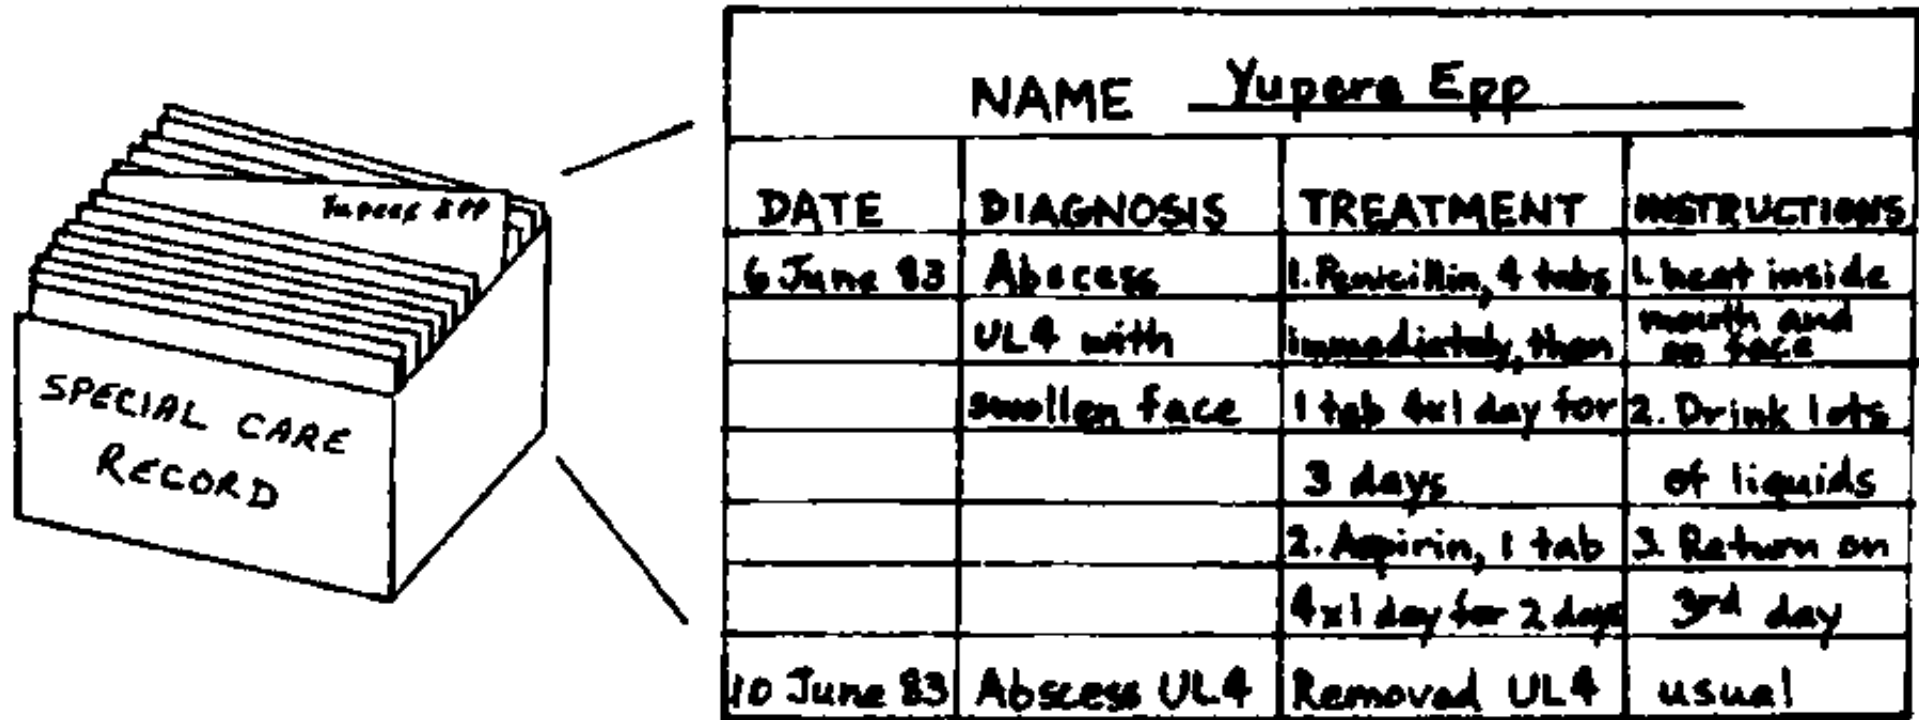 Yupere Epp
SPECIAL CARE
RECORD
NAME Yupere Epp
DATE DIAGNOSIS TREATMENT INSTRUCTIONS
6 June 83 Abscess 1. Penicillin, 4 tabs 1. heat inside
UL4 with immediately, then mouth and
on face
swollen face 1 tab 4x1 day for 2. Drink lots
3 days of liquids
2. Aspirin, 1 tab 3. Return on
4x1 day for 2 days 3rd day
10 June 83 Abscess UL4 Removed UL4 usual